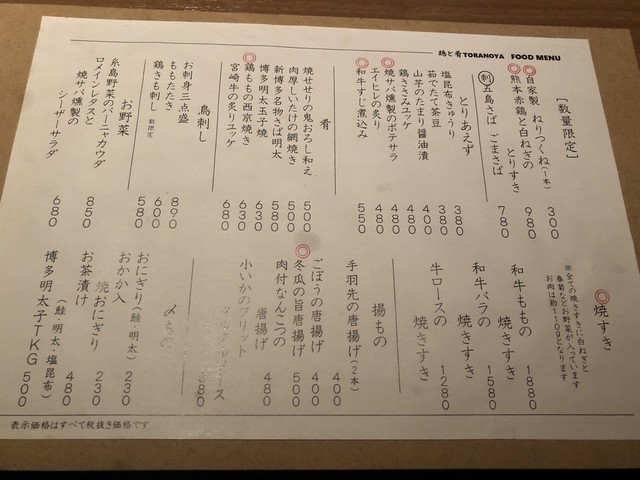 鶏と肴 TORANOYA FOOD MENU
［数量限定］
自家製 ねりつくね(1本) 300
熊本赤鶏と白ねぎの
とりすき 980
刺 五島さば ごまさば 780
とりあえず
塩昆布きゅうり 380
茹でたて茶豆 380
山芋のたまり醤油漬 400
鶏ささみユッケ 480
焼サバ燻製のポテサラ 480
エイヒレの炙り 480
和牛すじ煮込み 550
肴
焼せせりの鬼おろし和え 500
肉厚しいたけの網焼き 500
新博多名物さば明太 580
博多明太玉子焼 630
鶏ももの西京焼き 630
宮崎牛の炙りユッケ 680
鳥刺し
お刺身三点盛 890
ももたたき 600
鶏きも刺し 数限定 580
お野菜
糸島野菜のバーニャカウダ 850
ロメインレタスと
焼サバ燻製の
シーザーサラダ 680
焼すき
※全ての焼きすきに白ねぎと
春菊などお野菜が入っています
お肉は約110gとなります
和牛ももの 焼きすき 1880
和牛バラの 焼きすき 1580
牛ロースの 焼きすき 1280
揚もの
手羽先の唐揚げ(2本) 400
ごぼうの唐揚げ 400
冬瓜の旨唐揚げ 500
肉付なんこつの
唐揚げ 480
小いかのフリット
ース 680
〆もの
おにぎり(鮭・明太)
おかか入 230
焼おにぎり 230
お茶漬け
(鮭・明太・塩昆布) 480
博多明太子TKG 500
表示価格はすべて税抜き価格です